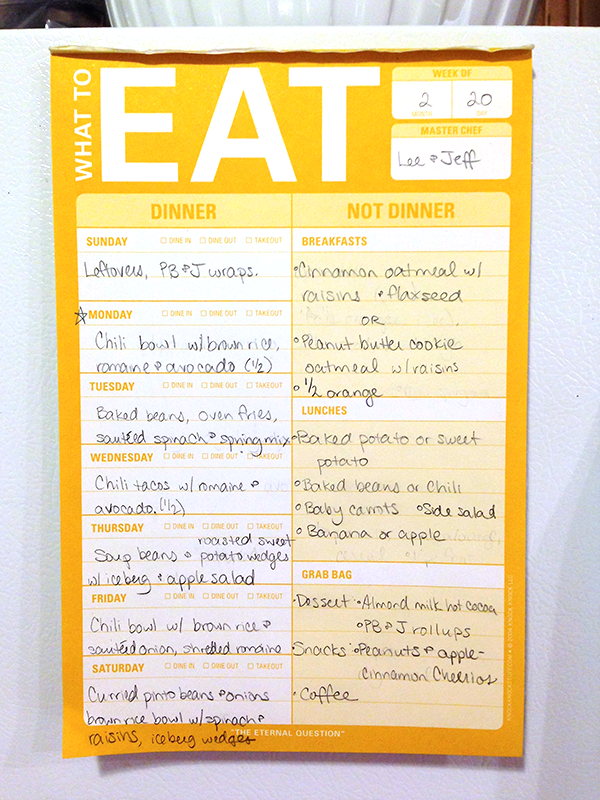 WHAT TO EAT
WEEK OF
2 20
MONTH DAY
MASTER CHEF
Lee & Jeff
DINNER
SUNDAY □ DINE IN □ DINE OUT □ TAKEOUT
Leftovers, PB&J wraps.
☆MONDAY □ DINE IN □ DINE OUT □ TAKEOUT
Chili bowl w/brown rice,
romaine & avocado (1/2)
TUESDAY □ DINE IN □ DINE OUT □ TAKEOUT
Baked beans, oven fries,
sautéed spinach & spring mix
WEDNESDAY □ DINE IN □ DINE OUT □ TAKEOUT
Chili tacos w/ romaine &
avocado. (1/2)
THURSDAY □ DINE IN □ DINE OUT □ TAKEOUT
roasted sweet
Soup beans & potato wedges
w/ iceberg & apple salad
FRIDAY □ DINE IN □ DINE OUT □ TAKEOUT
Chili bowl w/ brown rice &
sautéed onion, shredded romaine
SATURDAY □ DINE IN □ DINE OUT □ TAKEOUT
Curried pinto beans & onions
brown rice bowl w/spinach &
raisins, iceberg wedges
NOT DINNER
BREAKFASTS
•Cinnamon oatmeal w/
raisins & flaxseed
OR
•Peanut butter cookie
oatmeal w/raisins
•1/2 orange
LUNCHES
•Baked potato or sweet
potato
•Baked beans or Chili
•Baby carrots •Side salad
•Banana or apple
GRAB BAG
•Dessert •Almond milk hot cocoa
•PB & J rollups
Snacks •Peanuts & apple-
cinnamon Cheerios
•Coffee
"THE ETERNAL QUESTION"